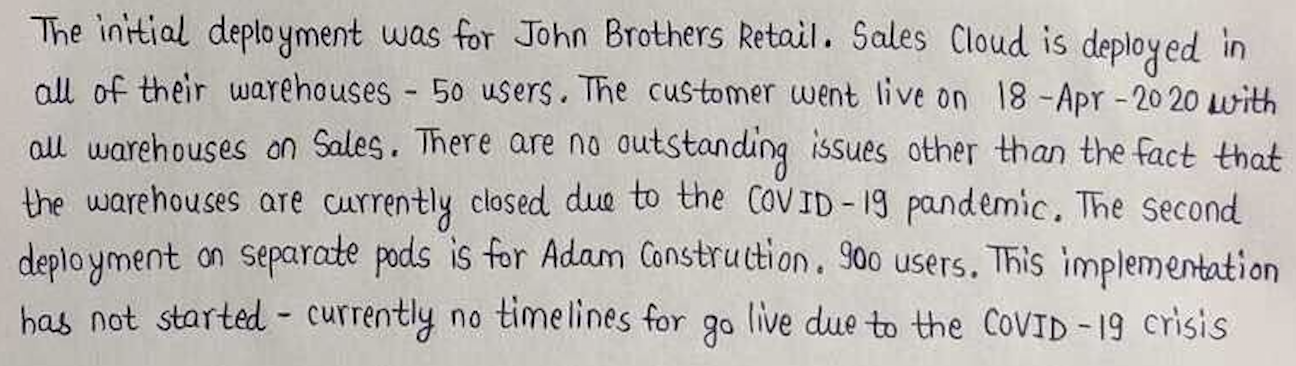 The initial deployment was for John Brothers Retail. Sales Cloud is deployed in
all of their warehouses - 50 users. The customer went live on 18-Apr-2020 with
all warehouses on Sales. There are no outstanding issues other than the fact that
the warehouses are currently closed due to the COVID-19 pandemic. The second
deployment on separate pods is for Adam Construction. 900 users. This implementation
has not started - currently no timelines for go live due to the COVID-19 crisis